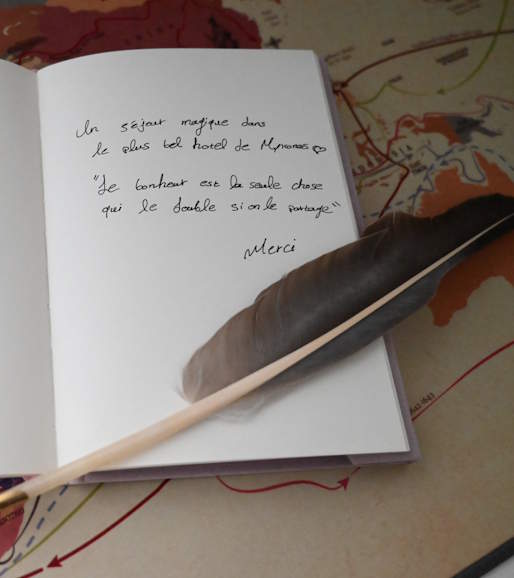 Un séjour magique dans
le plus bel hotel de Myconos
"Le bonheur est la seule chose
qui le double si on le partage"
Merci